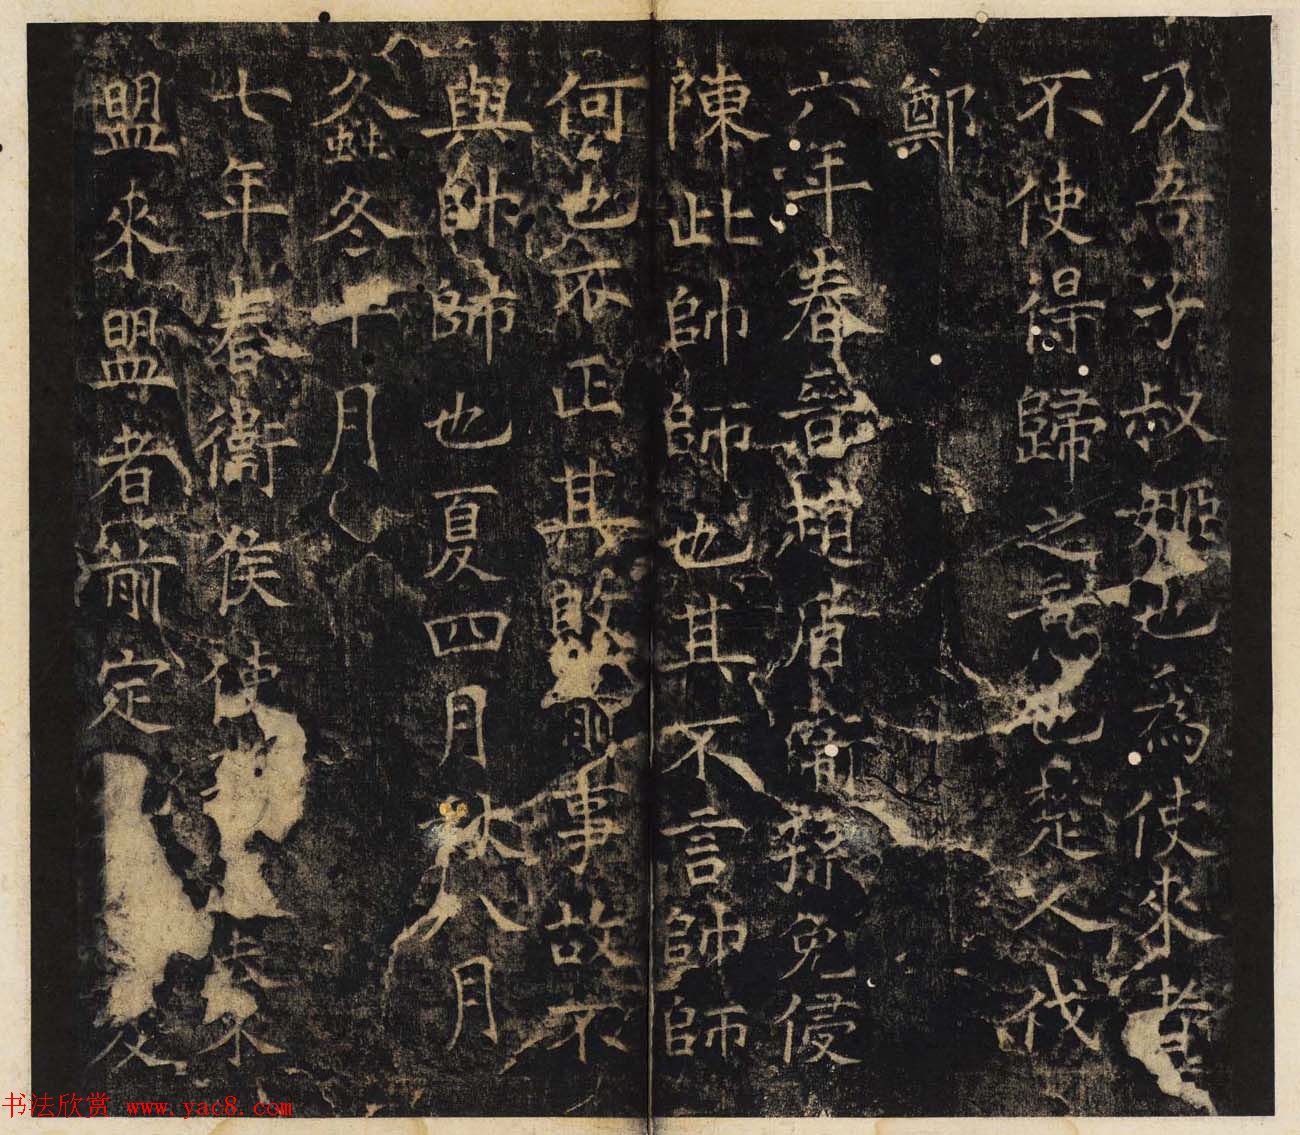 及吾子叔姬也為使來者
不使得歸之意也楚人伐
鄭
六年春晉趙盾衛孫免侵
陳此帥師也其不言帥師
何也不正其敗前事故不
與帥師也夏四月秋八月
螽冬十月
七年春衛侯使夫来
盟來盟者前定及
书法欣赏 www.yac8.com